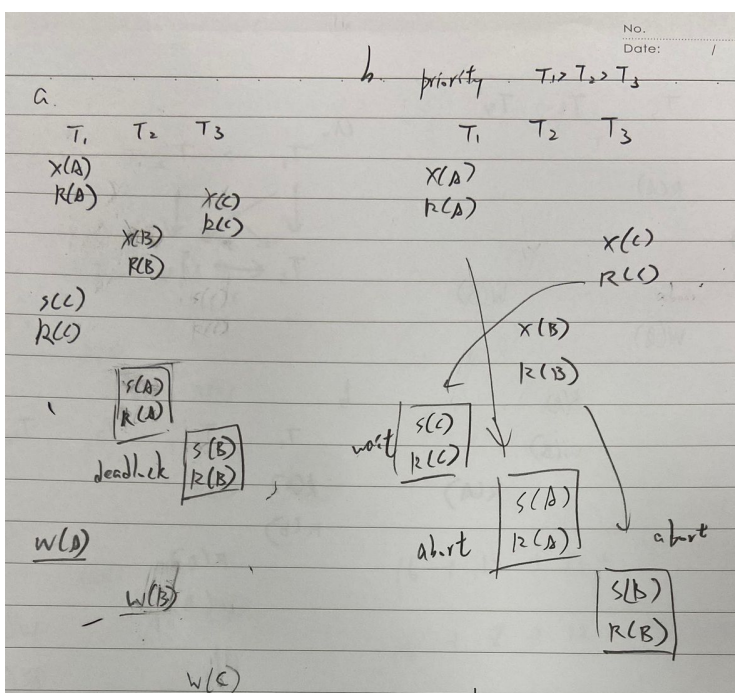 No.
Date: /
a.
T1 T2 T3
X(A)
R(A) X(C)
R(C)
X(B)
R(B)
S(C)
R(C)
S(A)
R(A)
deadlock S(B)
R(B)
W(A)
W(B)
W(C)
b. priority T1> T2> T3
T1 T2 T3
X(A)
R(A)
X(C)
R(C)
X(B)
R(B)
wait S(C)
R(C)
S(A)
abort R(A)
abort
S(B)
R(B)